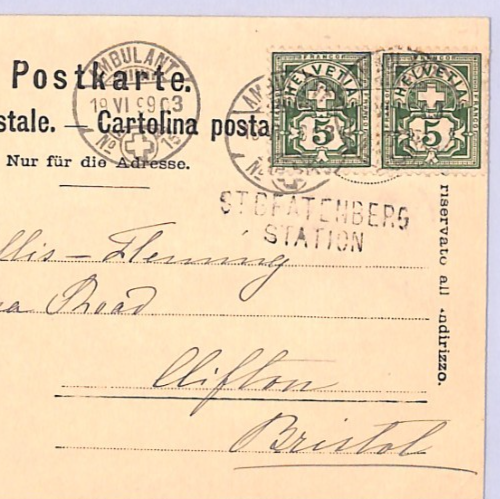 AMBULANT
Postkarte.
19 VI 99 03
No 15
stale. — Cartolina posta
Nur für die Adresse.
FRANCO FRANCO
HELVETIA HELVETIA
5 5
ST BEATENBERG
STATION
llis-Flemming
a Road
Clifton
Bristol
riservato all' indirizzo.